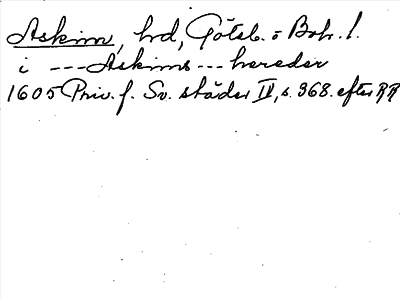 Askim, hd, Göteb. o Boh. l.
i --- Askims --- hereder
1605 Priv. f. Sv. städer IV, s. 368. efter RR